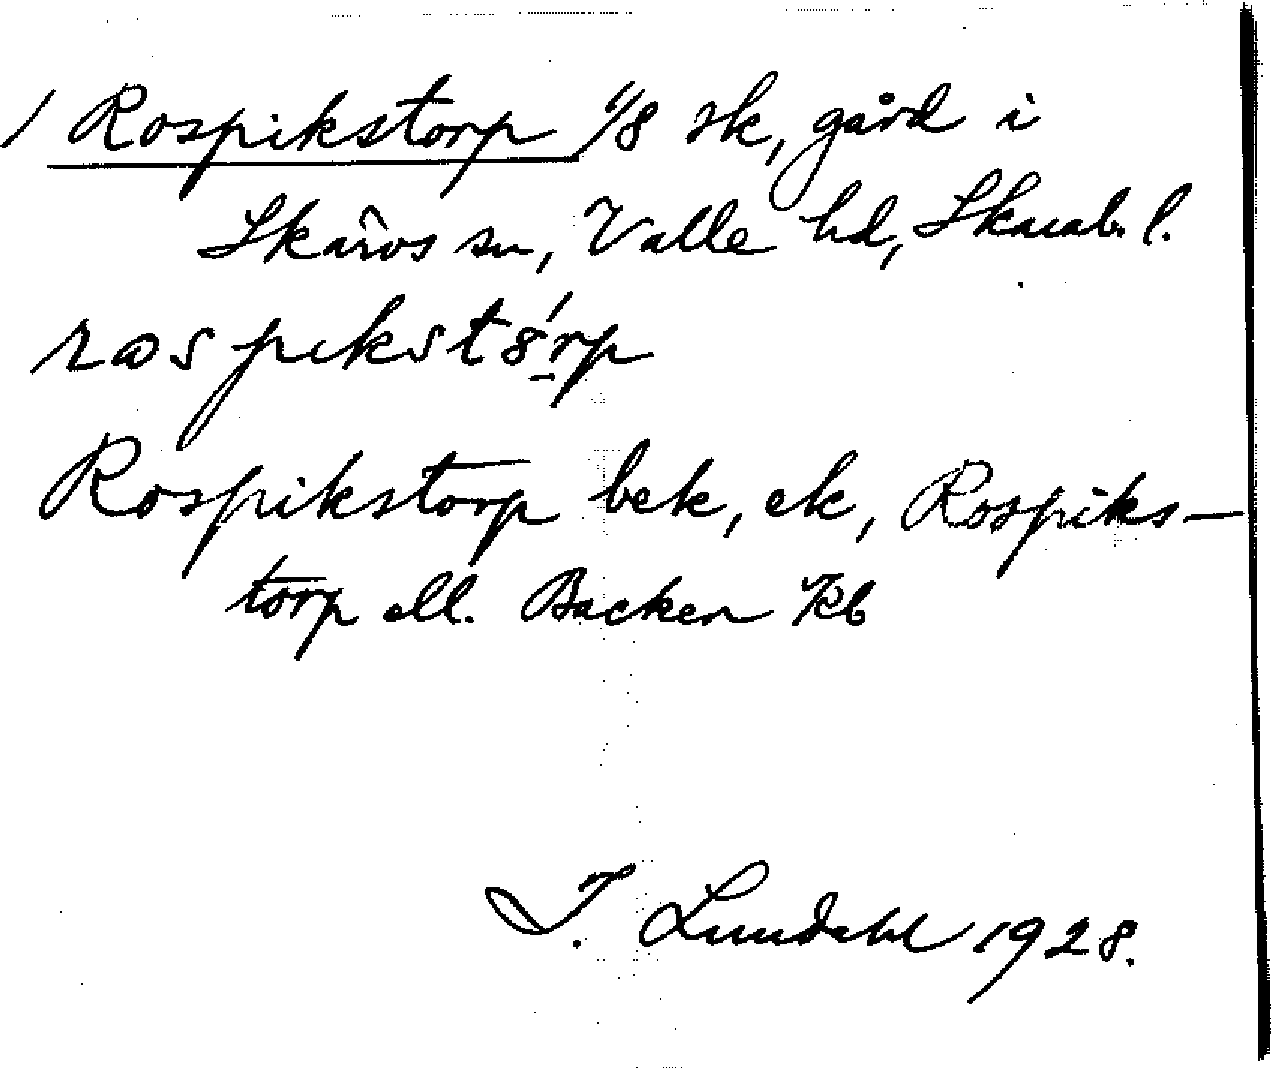 / Rospikstorp 1/8 sk, gård i
Skärvs sn, Valle hd, Skarab. l.
Rospikstorp bek, ek, Rospiks-
torp ell. Backen Kb
I. Lundahl 1928.